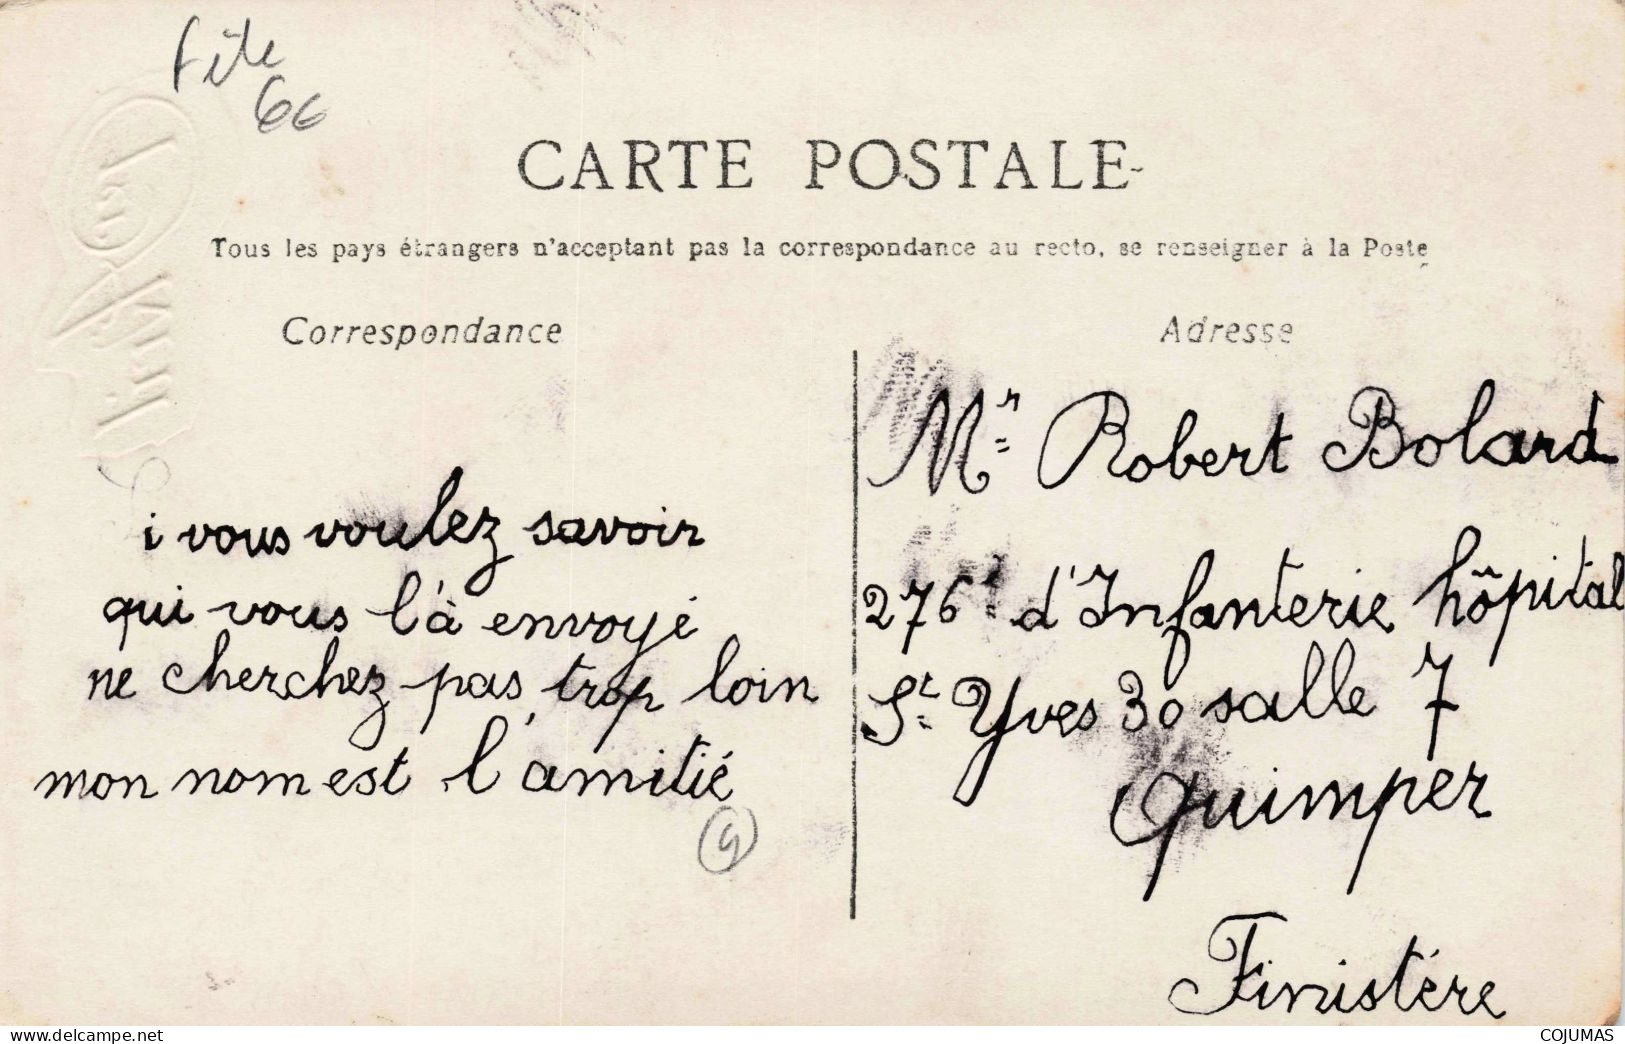 fête
66
CARTE POSTALE
Tous les pays étrangers n'acceptant pas la correspondance au recto, se renseigner à la Poste
Correspondance
i vous voulez savoir
qui vous l'à envoyé
ne cherchez pas trop loin
mon nom est l'amitié
9
Adresse
Mr Robert Bolard
276e d'Infanterie hôpital
St Yves 30 salle 7
Quimper
Finistére
www.delcampe.net
COJUMAS